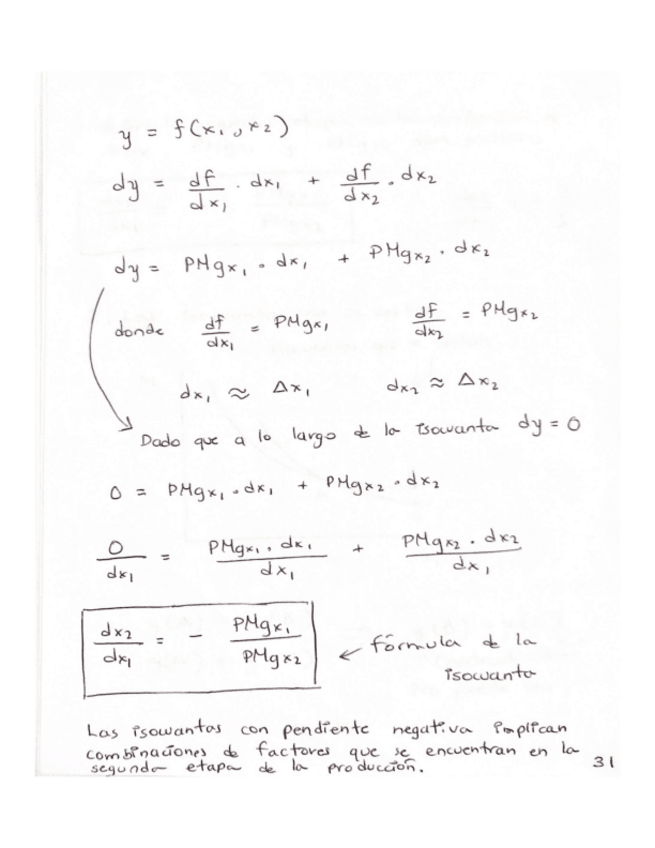 y = f(x₁, x₂)
dy = df/dx₁ · dx₁ + df/dx₂ · dx₂
dy = PMgx₁ · dx₁ + PMgx₂ · dx₂
donde df/dx₁ = PMgx₁ df/dx₂ = PMgx₂
dx₁ ≈ Δx₁ dx₂ ≈ Δx₂
Dado que a lo largo de la isowanta dy = 0
0 = PMgx₁ · dx₁ + PMgx₂ · dx₂
0/dx₁ = PMgx₁ · dx₁/dx₁ + PMgx₂ · dx₂/dx₁
dx₂/dx₁ = - PMgx₁/PMgx₂ ← fórmula de la
isowanta
Las isowantas con pendiente negativa implican
combinaciones de factores que se encuentran en la
segunda etapa de la producción. 31